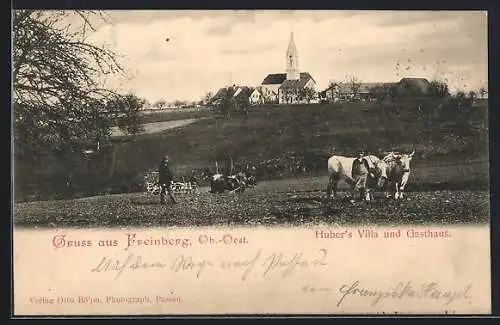 Gruss aus Freinberg, Ob.-Oest.
Huber's Villa und Gasthaus.
Auf dem Wege nach
von Franziska
Verlag Otto Böhm, Photograph, Passau.